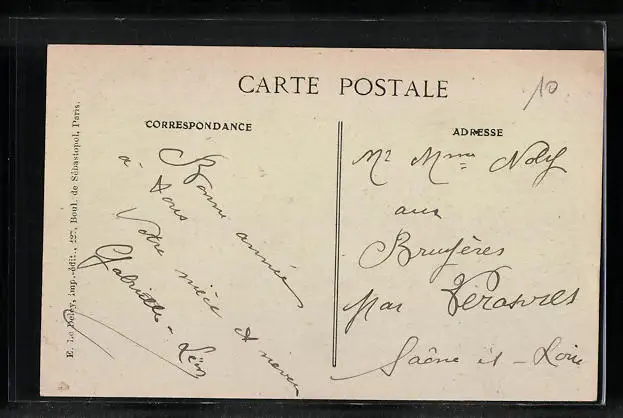 CARTE POSTALE
10
CORRESPONDANCE
Bonne année
à tous
Votre nièce et neveu
Gabrielle - Léon
ADRESSE
Mr Mme Noly
aux
Bruyères
par Verosvres
Saône et - Loire
E. Le Deley, imp.-édit., 127, Boul. de Sébastopol, Paris.